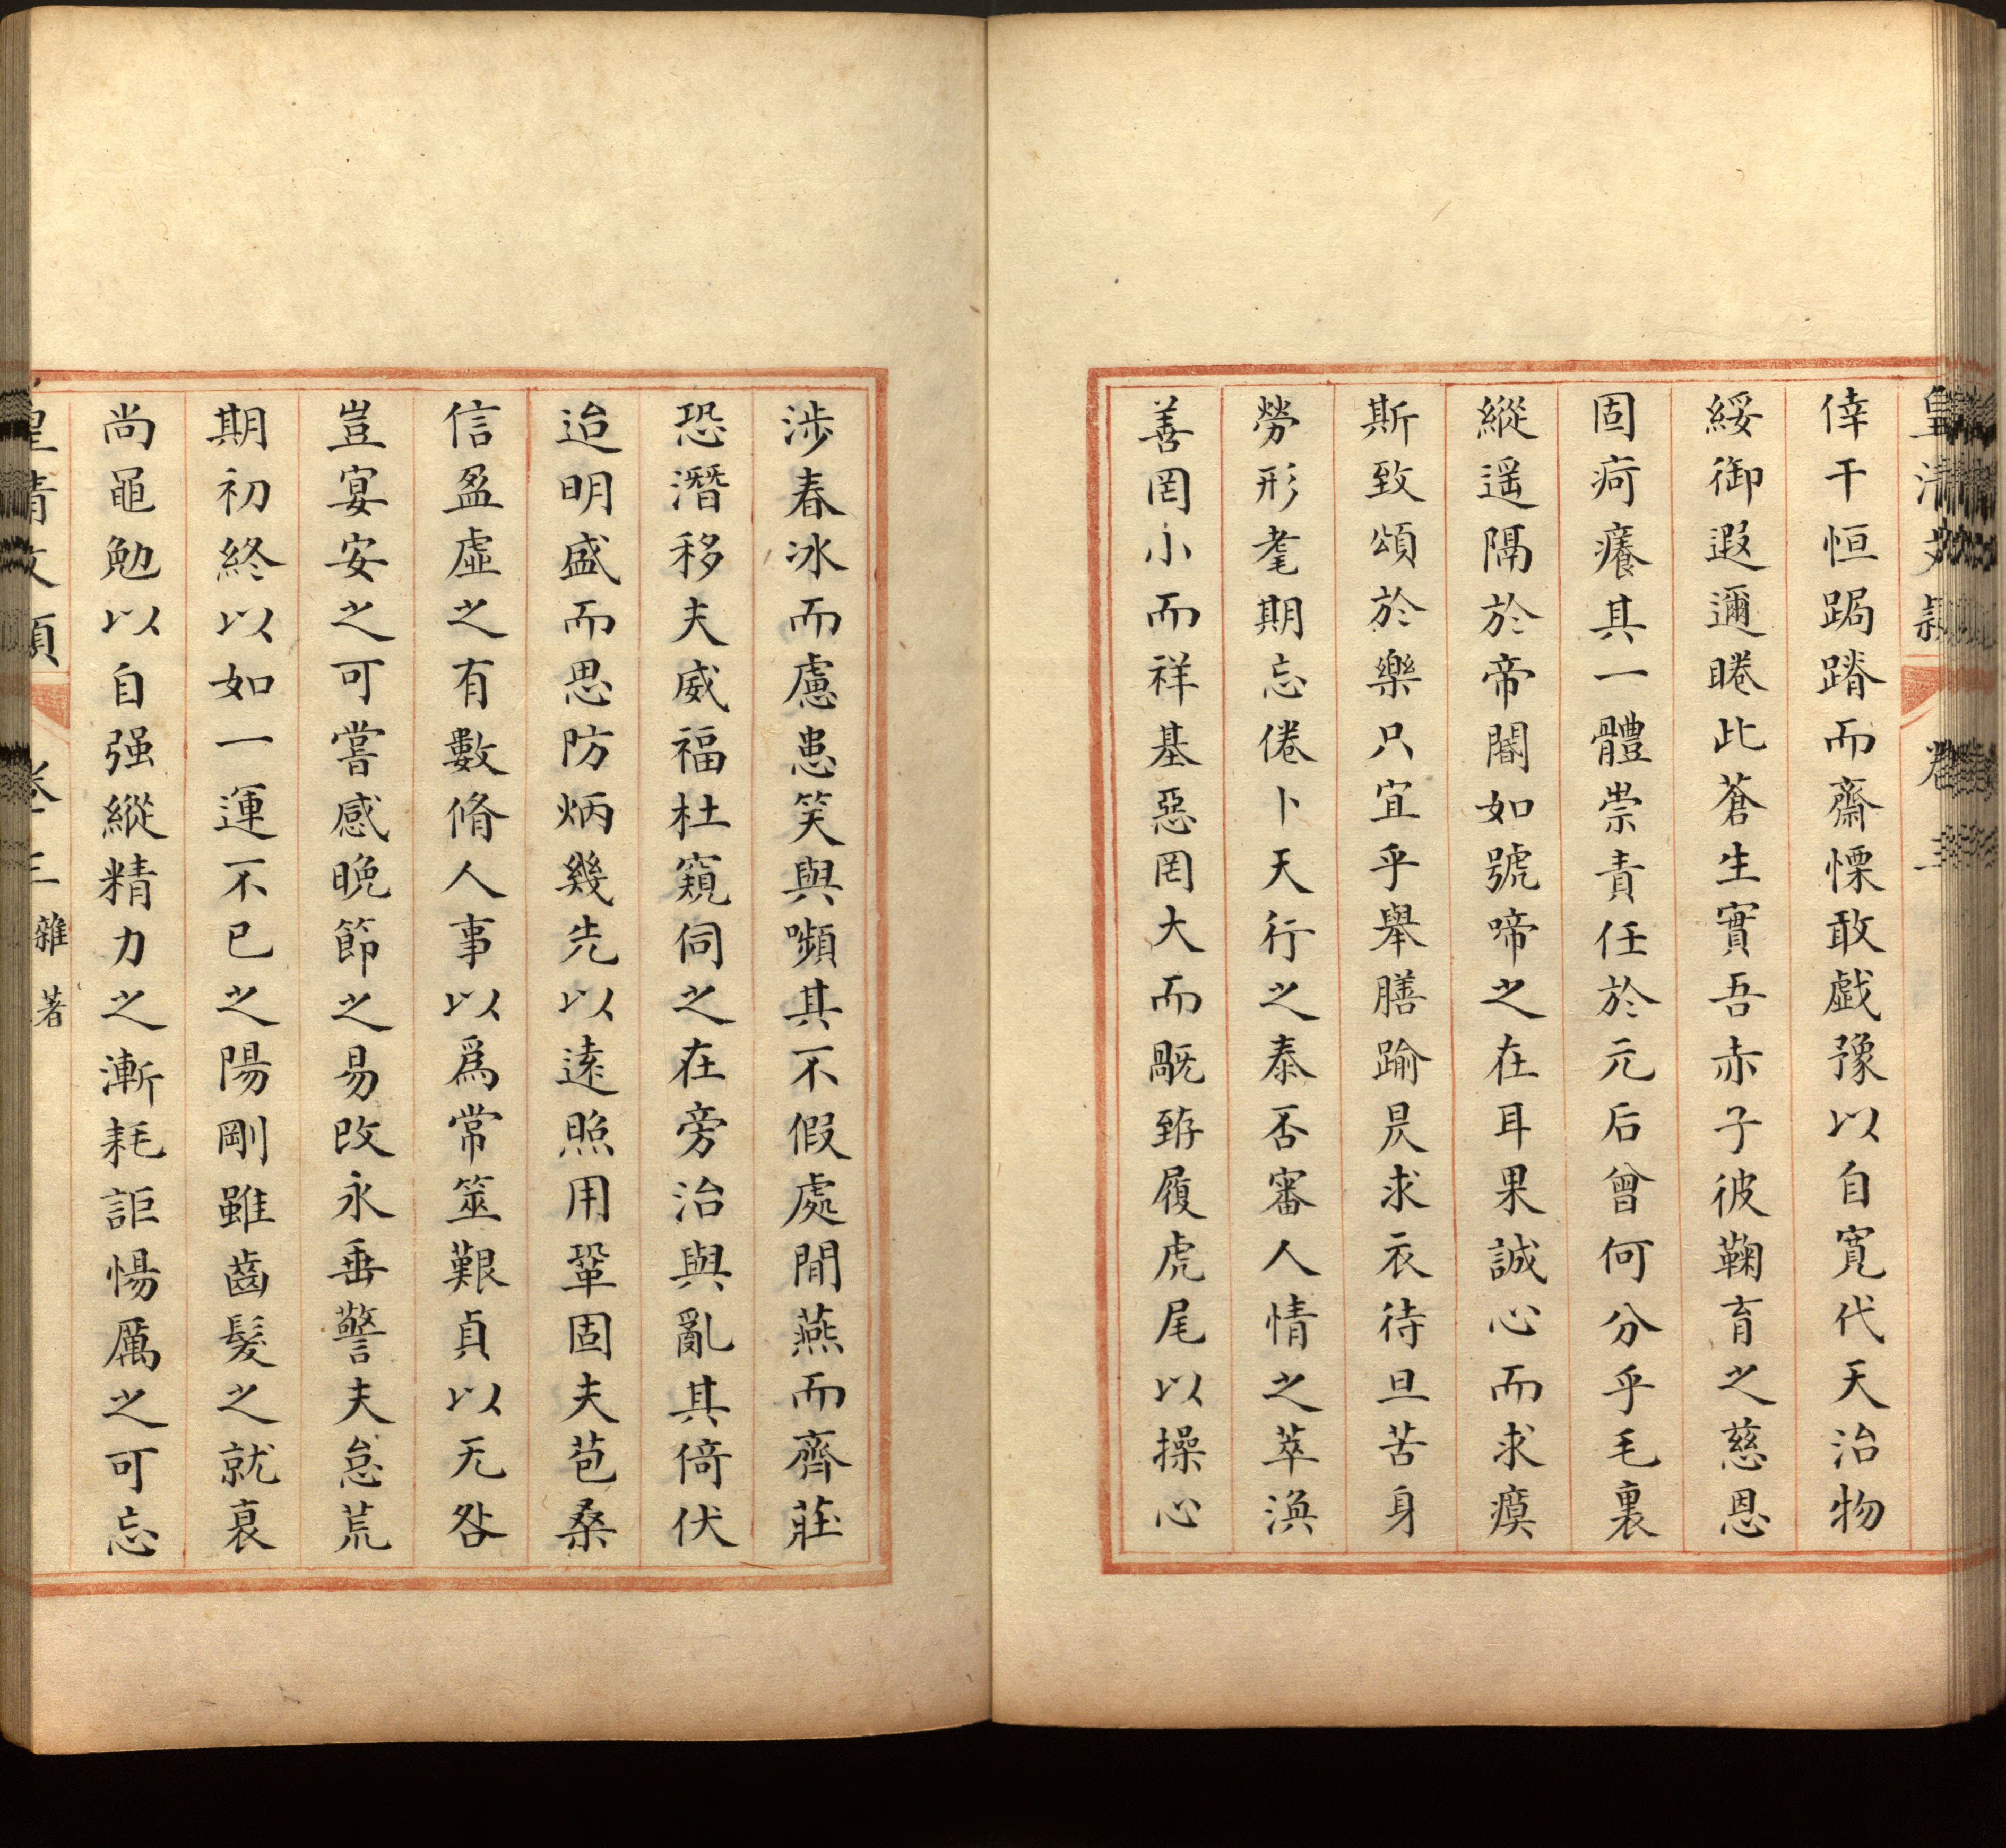 皇清文穎 卷三
倖干恒跼蹐而齋慄敢戯豫以自寛代天治物
綏御遐邇睠此蒼生實吾赤子彼鞠育之慈恩
固疴癢其一體崇責任於元后曾何分乎毛裏
縱遥隔於帝閽如號啼之在耳果誠心而求瘼
斯致頌於樂只宜乎舉膳踰昃求衣待旦苦身
勞形耄期忘倦卜天行之泰否審人情之萃渙
善罔小而祥基惡罔大而𣄴臻履虎尾以操心
涉春冰而慮患笑與嚬其不假處閒燕而齊莊
恐潛移夫威福杜窺伺之在旁治與亂其倚伏
迨明盛而思防炳幾先以逺照用鞏固夫苞桑
信盈虛之有數脩人事以爲常筮艱貞以无咎
豈宴安之可嘗感晩節之易改永垂警夫怠荒
期初終以如一運不已之陽剛雖齒髮之就衰
尚黽勉以自强縱精力之漸耗詎惕厲之可忘
皇清文穎 卷三 雜著